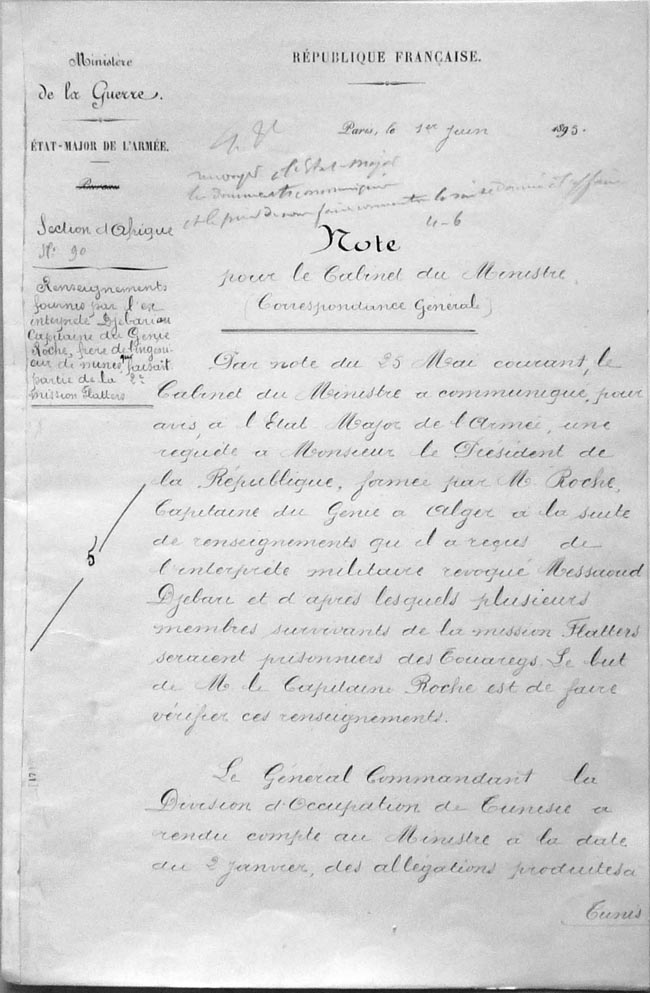 Ministère
de la Guerre.
ÉTAT-MAJOR DE L'ARMÉE.
Bureau
Section d'Afrique
N° 90
Renseignements
fournis par l'ex
interprète Djebari au
Capitaine du Génie
Roche, frère de l'ingéni-
eur de mines faisant
partie de la 2e
mission Flatters
RÉPUBLIQUE FRANÇAISE.
Paris, le 1er Juin 1893.
4-6
Note
pour le Cabinet du Ministre
(Correspondance Générale)
Par note du 25 Mai courant, le
Cabinet du Ministre a communiqué, pour
avis, à l'Etat Major de l'Armée, une
requête à Monsieur le Président de
la République, formée par M. Roche,
Capitaine du Génie à Alger à la suite
de renseignements qu'il a reçus de
l'interprète militaire revoqué Messaoud
Djebari et d'après lesquels plusieurs
membres survivants de la mission Flatters
seraient prisonniers des Touaregs. Le but
de M. le Capitaine Roche est de faire
vérifier ces renseignements.
5
Le Général Commandant la
Division d'Occupation de Tunisie a
rendu compte au Ministre à la date
du 2 Janvier, des allégations produites à
Tunis